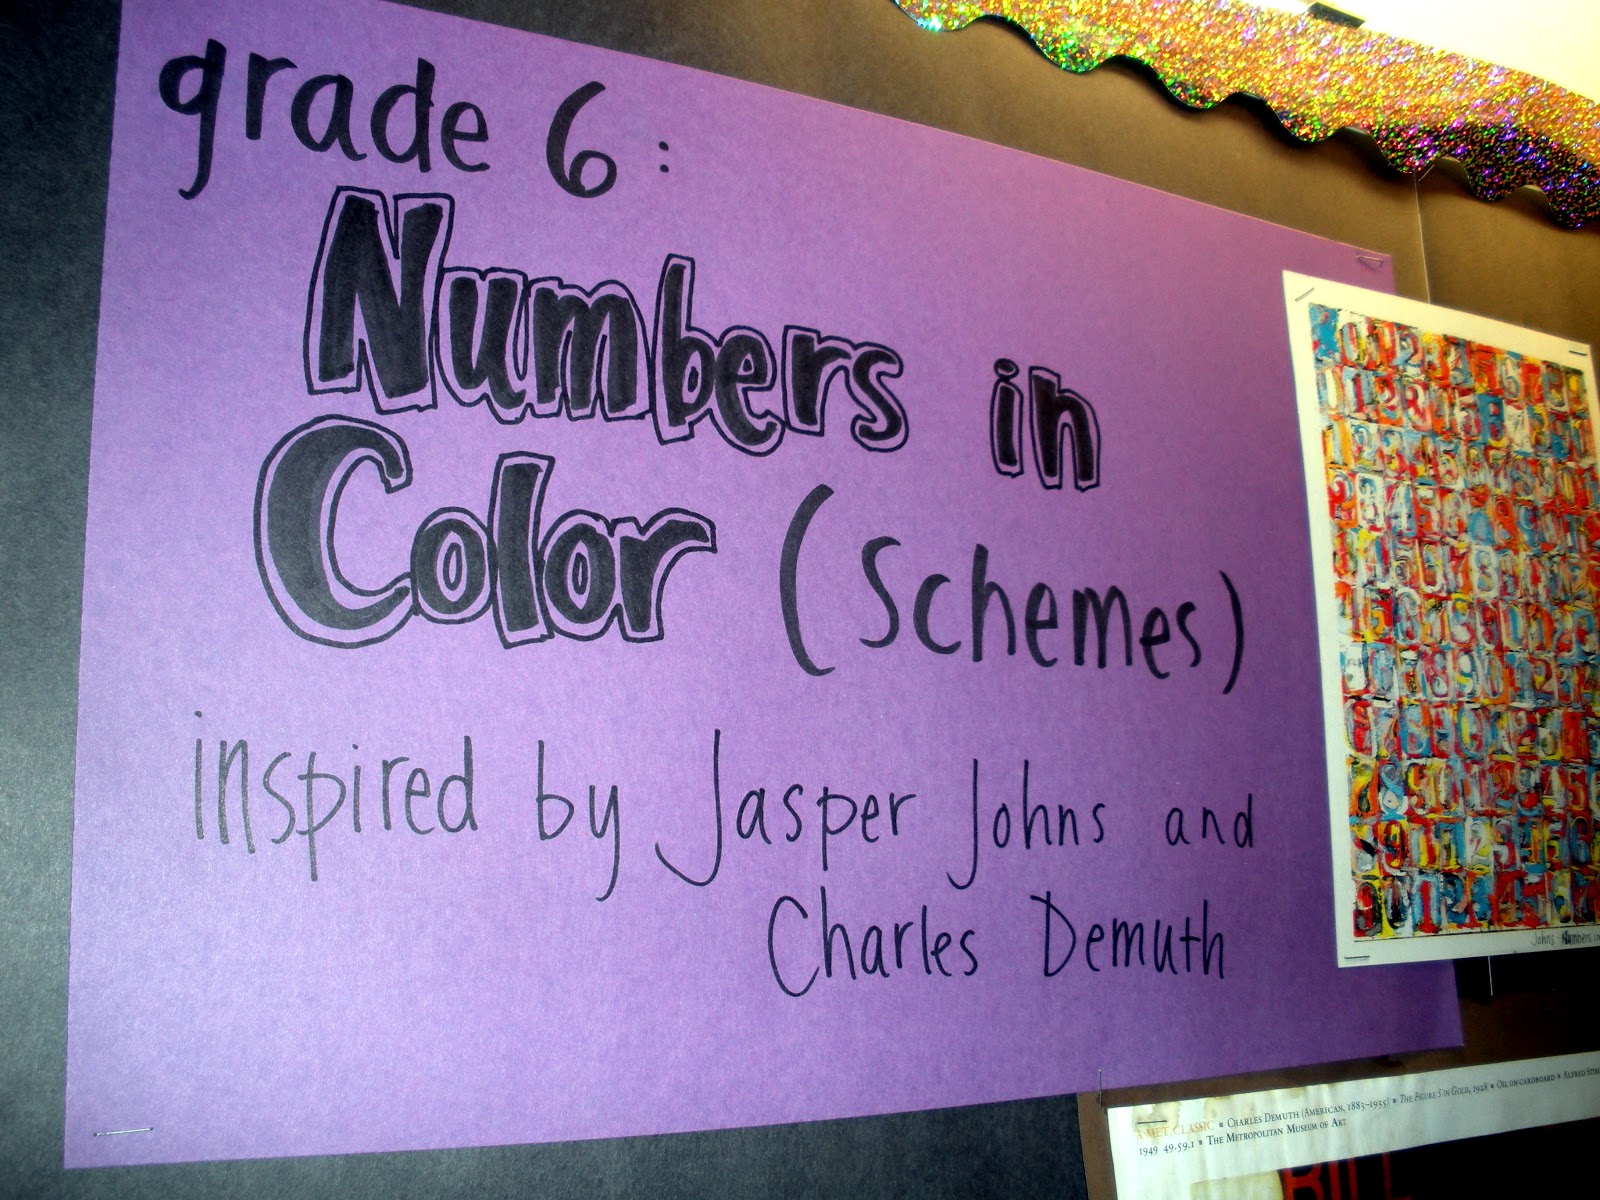 grade 6:
Numbers in
Color (Schemes)
inspired by Jasper Johns and
Charles Demuth
Johns - Numbers in
A MET CLASSIC ■ CHARLES DEMUTH (AMERICAN, 1883–1935) ■ THE FIGURE 5 IN GOLD, 1928 ■ OIL ON CARDBOARD ■ ALFRED
1949 49.59.1 ■ THE METROPOLITAN MUSEUM OF ART
BILL